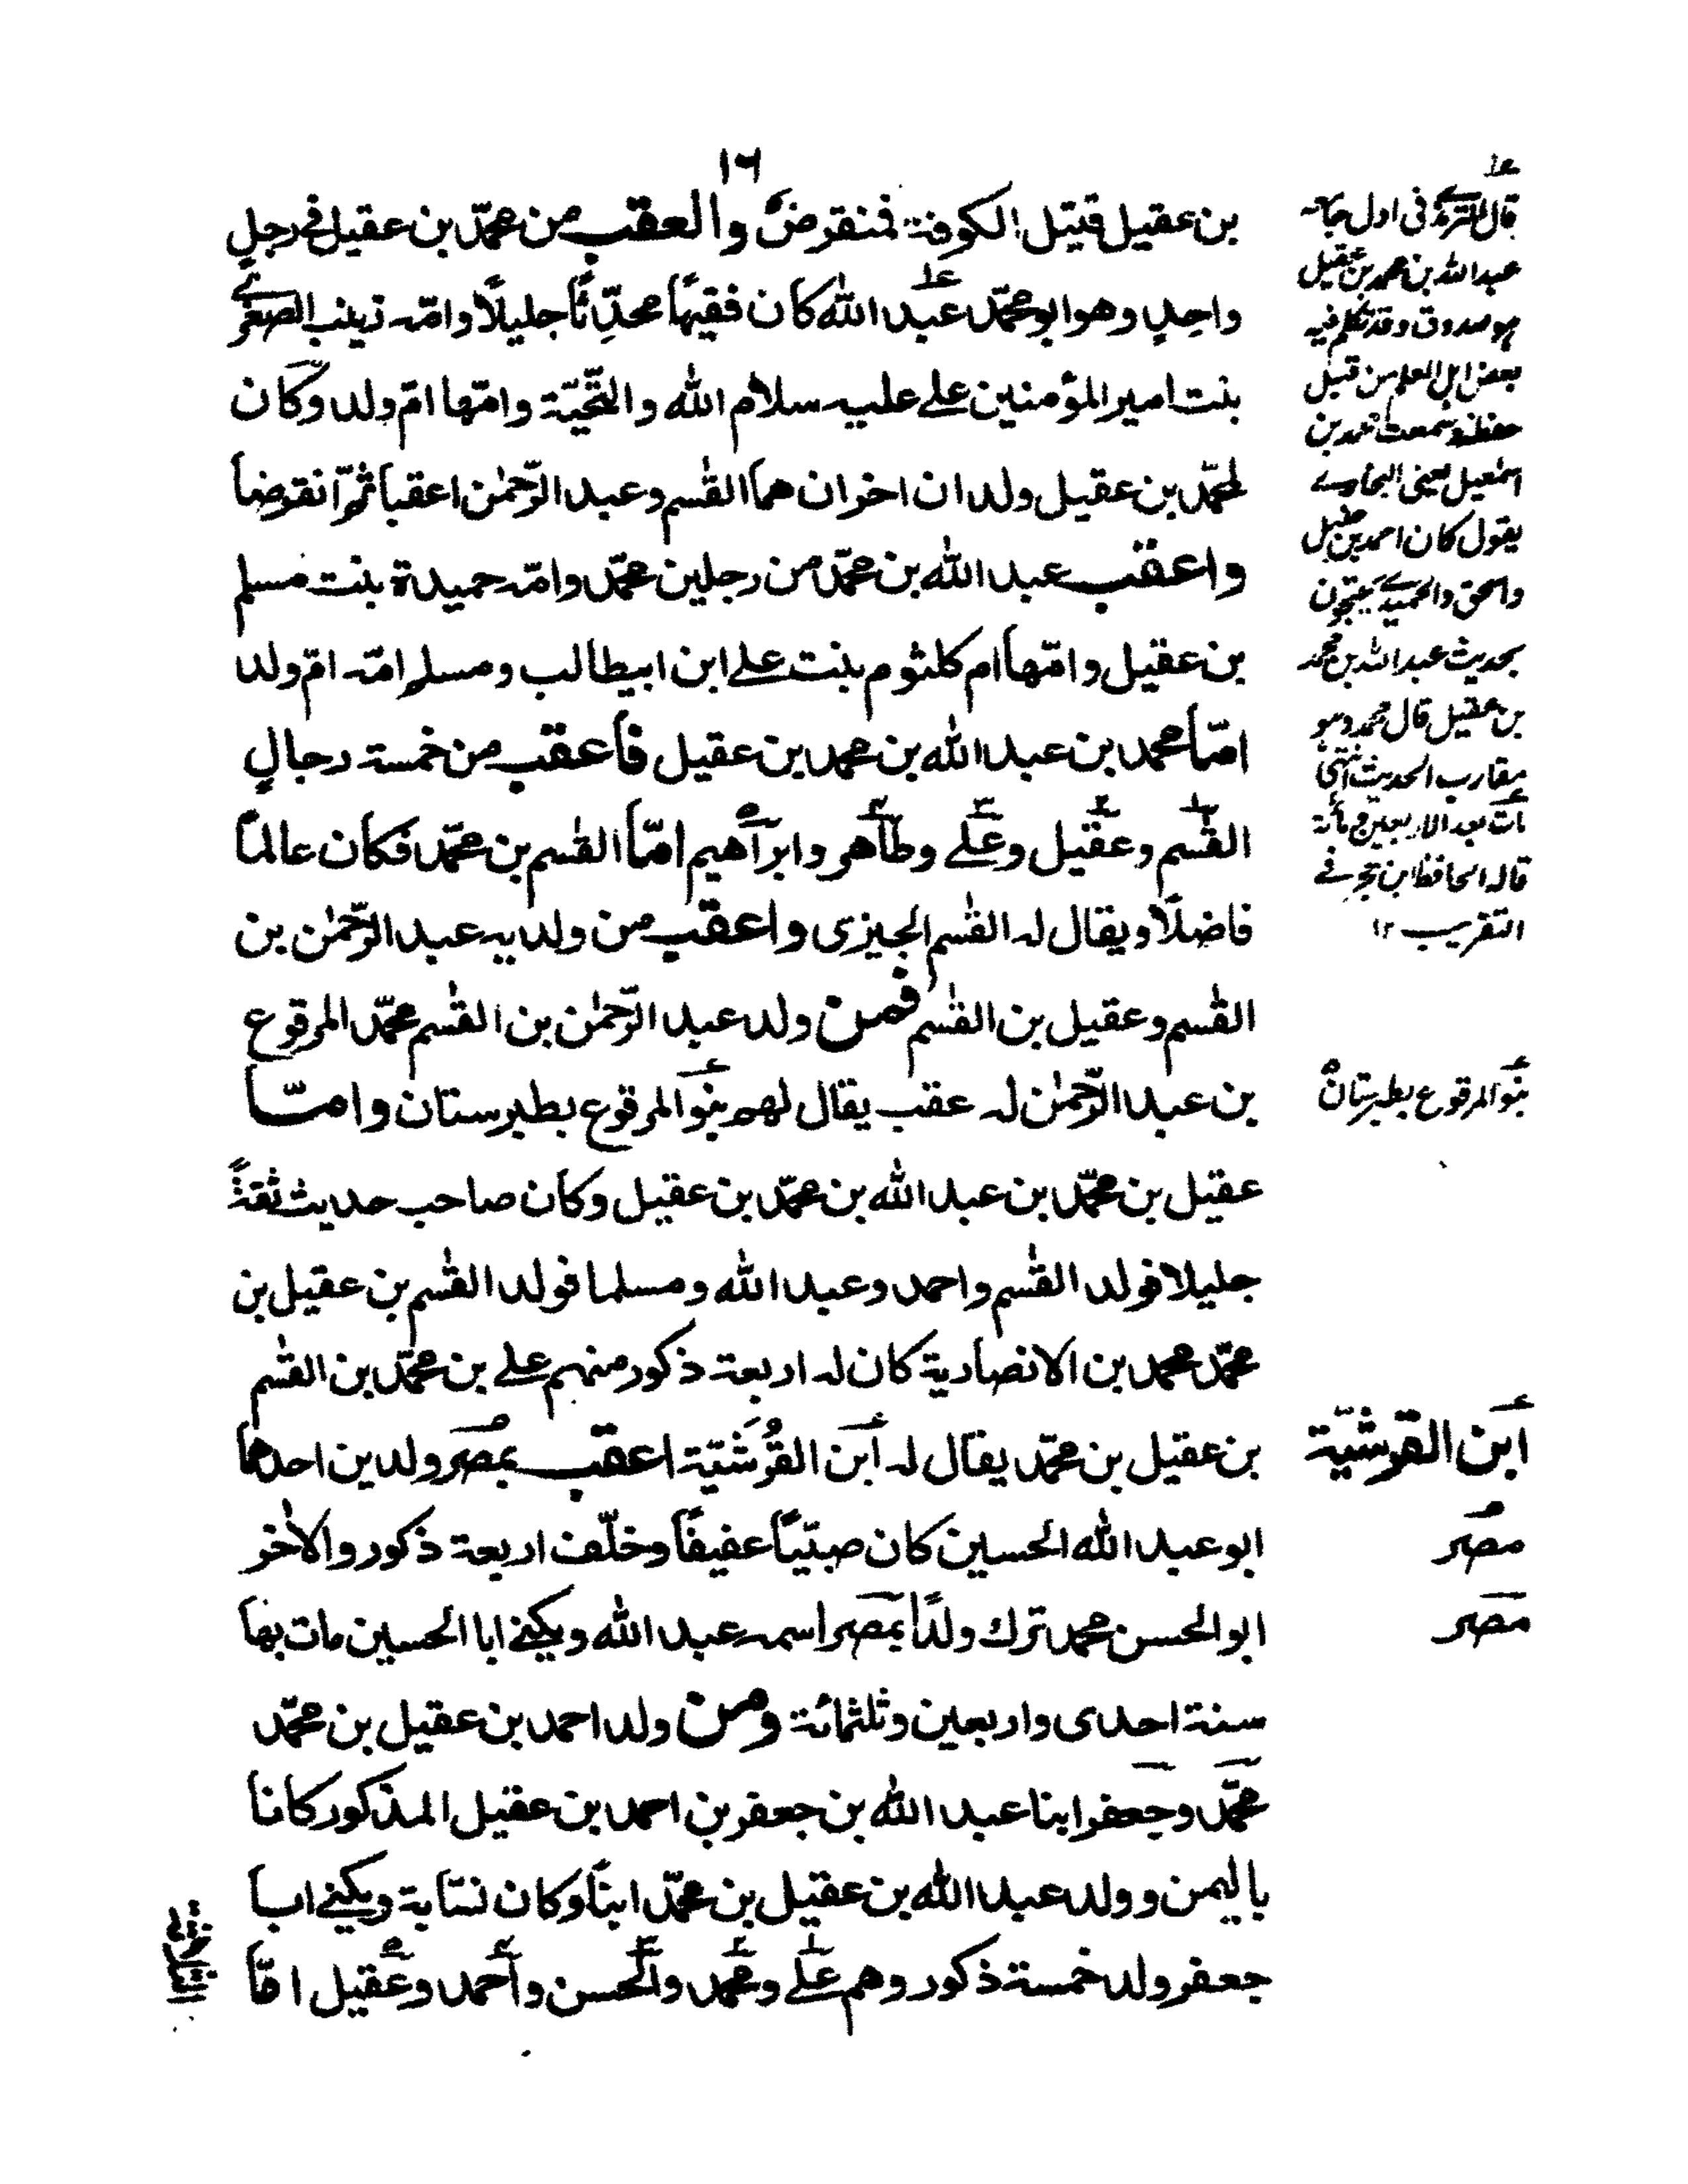 ١٦
بن عقيل قتيل الكوفة فمنقرض والعقب من محمّد بن عقيل فى رجلٍ
واحدٍ وهو ابو محمّد عبد الله كان فقيهًا محدِّثًا جليلًا وامّه زينب الصغرے
بنت امير المؤمنين علے عليه سلام الله والتّحيّة وامّها امّ ولد وكان
لمحمّد بن عقيل ولدان اخران هما القٰسم وعبد الرّحمٰن اعقبا ثمّ انقرضا
واعقب عبد الله بن محمّد من رجلين محمّد وامّه حميدة بنت مسلم
بن عقيل وامّها ام كلثوم بنت علے ابن ابيطالب ومسلم امّه امّ ولد
امّا محمد بن عبد الله بن محمد بن عقيل فاعقب من خمسة رجالٍ
القٰسم وعقيل وعلے وطاهر وابراهيم امّا القٰسم بن محمّد فكان عالمًا
فاضلًا ويقال له القٰسم الجيزى واعقب من ولديه عبد الرّحمٰن بن
القٰسم وعقيل بن القٰسم فمن ولد عبد الرّحمٰن بن القٰسم محمّد المرقوع
بن عبد الرّحمٰن له عقب يقال لهم بنو المرقوع بطبرستان وامّا
عقيل بن محمّد بن عبد الله بن محمّد بن عقيل وكان صاحب حديث ثقةً
جليلا فولد القٰسم واحمد وعبد الله ومسلما فولد القٰسم بن عقيل بن
محمّد محمد بن الانصارية كان له اربعة ذكور منهم علے بن محمّد بن القٰسم
بن عقيل بن محمّد يقال له ابن القُرَشيّة اعقب بمصر ولدين احدهما
ابو عبد الله الحسين كان صبيًّا عفيفًا وخلّف اربعة ذكور والاٰخر
ابو الحسن محمد ترك ولدًا بمصر اسمه عبد الله ويكنے ابا الحسين مات بها
سنة احدى واربعين وثلثمائة ومن ولد احمد بن عقيل بن محمّد
محمّد وجعفر ابنا عبد الله بن جعفر بن احمد بن عقيل المذكور كانا
باليمن وولد عبد الله بن عقيل بن محمّد ابنًا وكان نسّابة ويكنے ابا
جعفر ولد خمسة ذكور وهم علے ومحمد والحسن واحمد وعقيل امّا
قال الترمذے فى اول جامعه
عبد الله بن محمد بن عقيل
هو صدوق وقد تكلم فيه
بعض اهل العلم من قبل
حفظه وسمعت محمد بن
اسمٰعيل يعنى البخارے
يقول كان احمد بن حنبل
واسحق والحميدے يحتجون
بحديث عبد الله بن محمد
بن عقيل قال محمد وهو
مقارب الحديث انتهىٰ
مات بعد الاربعين ومائة
قاله الحافظ ابن حجر فے
التقريب ١٢
بنو المرقوع بطبرستان
ابن القرشيّة
مصر
مصر